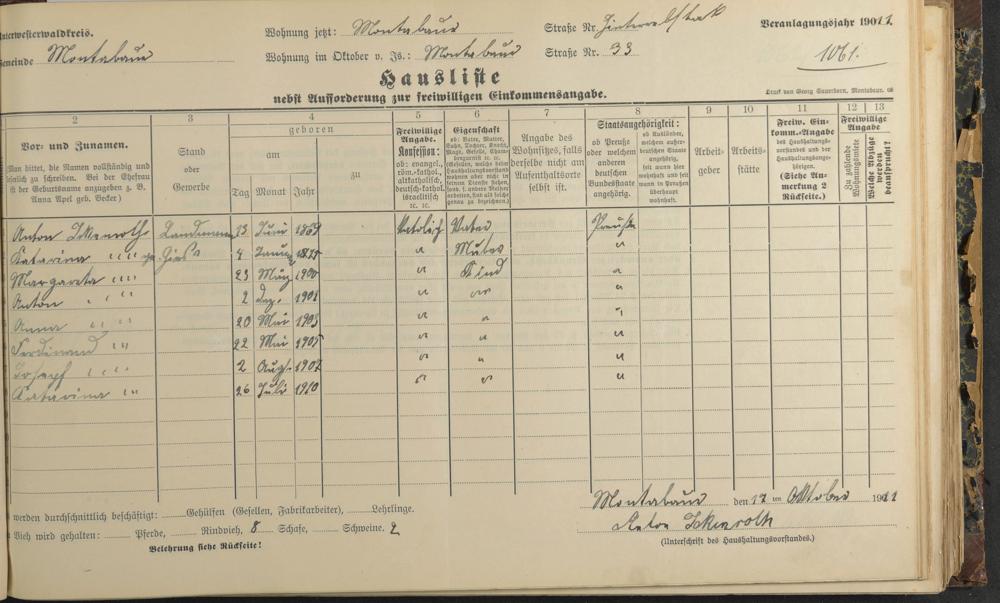 Unterwesterwaldkreis.
Gemeinde Montabaur
Wohnung jetzt: Montabaur Straße Nr.
Wohnung im Oktober v. Js.: Montabaur Straße Nr. 33
Veranlagungsjahr 1911.
1061.
Hausliste
nebst Aufforderung zur freiwilligen Einkommensangabe.
Druck von Georg Sauerborn, Montabaur.
2 3 4 5 6 7 8 9 10 11 12 13
Vor- und Zunamen.
Man bittet, die Namen vollständig und
deutlich zu schreiben. Bei der Ehefrau
ist der Geburtsname anzugeben z. B.
Anna Apel geb. Becker)
Stand
oder
Gewerbe
geboren
am
zu
Tag Monat Jahr
Freiwillige
Angabe.
Konfession:
ob: evangel.,
röm.-kathol.,
altkatholisch,
deutsch-kathol.
israelitisch
ec. ec.
Eigenschaft
ob: Vater, Mutter,
Sohn, Tochter, Knecht,
Magd, Geselle,
Angabe des
Wohnsitzes, falls
derselbe nicht am
Aufenthaltsorte
selbst ist.
Staatsangehörigkeit:
ob Preuße
oder welchem
anderen
deutschen
Bundesstaate
angehörig.
ob Ausländer,
welchem außer-
deutschen Staate
angehörig,
seit wann hier
wohnhaft und seit
wann in Preußen
überhaupt
wohnhaft.
Arbeit-
geber
Arbeits-
stätte
Freiw. Ein-
komm.-Angabe
des Haushaltungs-
vorstandes und der
Haushaltungsange-
hörigen.
(Siehe An-
merkung 2
Rückseite.)
Freiwillige
Angabe
Zu zahlende
Wohnungsmiete
Welche Abzüge
werden
beansprucht?
Anton Ickenroth Landmann 13 Juni 1869 Katolich Vater Preuße
Katarina " " " 4 " Mutter "
Margareta " " " 23 März 1900 " Kind "
Anton " " " 2 Dez. 1901 " " "
Anna " " " 20 Mai 1903 " " "
Ferdinand " " 22 Mai 1905 " " "
Joseph " " " 2 Augst. 1907 " " "
Katarina " " 26 Juli 1910 " " "
Montabaur den 17ten Oktober 1911
Anton Ickenroth
(Unterschrift des Haushaltungsvorstandes.)
werden durchschnittlich beschäftigt: Gehülfen (Gesellen, Fabrikarbeiter), Lehrlinge.
Vieh wird gehalten: Pferde, Rindvieh, 8 Schafe, Schweine. 2
Belehrung siehe Rückseite!